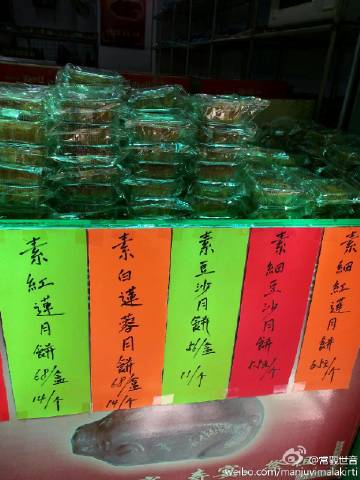 素紅蓮月餅
68/盒
14/个
素白蓮蓉月餅
68/盒
14/个
素豆沙月餅
56/盒
11/个
素細豆沙月餅
5.5元/个
素細紅蓮月餅
6.5元/个
@常毀世音
weibo.com/manjuvimalakirti